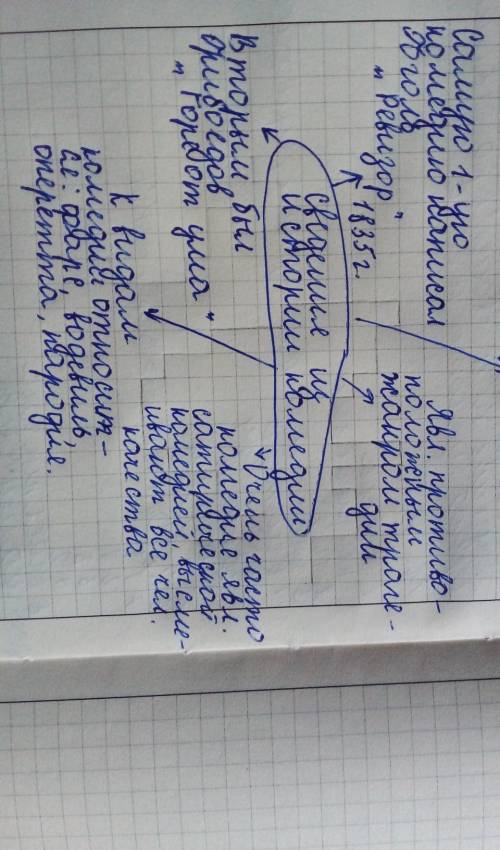 Самую 1-ую
комедию написал
Гоголь
„Ревизор" 1835г.
Явл. противо-
положным
жанром траге-
дии
Сведенья из
истории комедии
Вторым был
Грибоедов
„Горе от ума"
Очень часто
комедие явл.
сатирической
комедией, высме-
ивают все чел.
качества
К видам
комедии относит-
ся: фарс, водевиль,
оперетта, пародия.